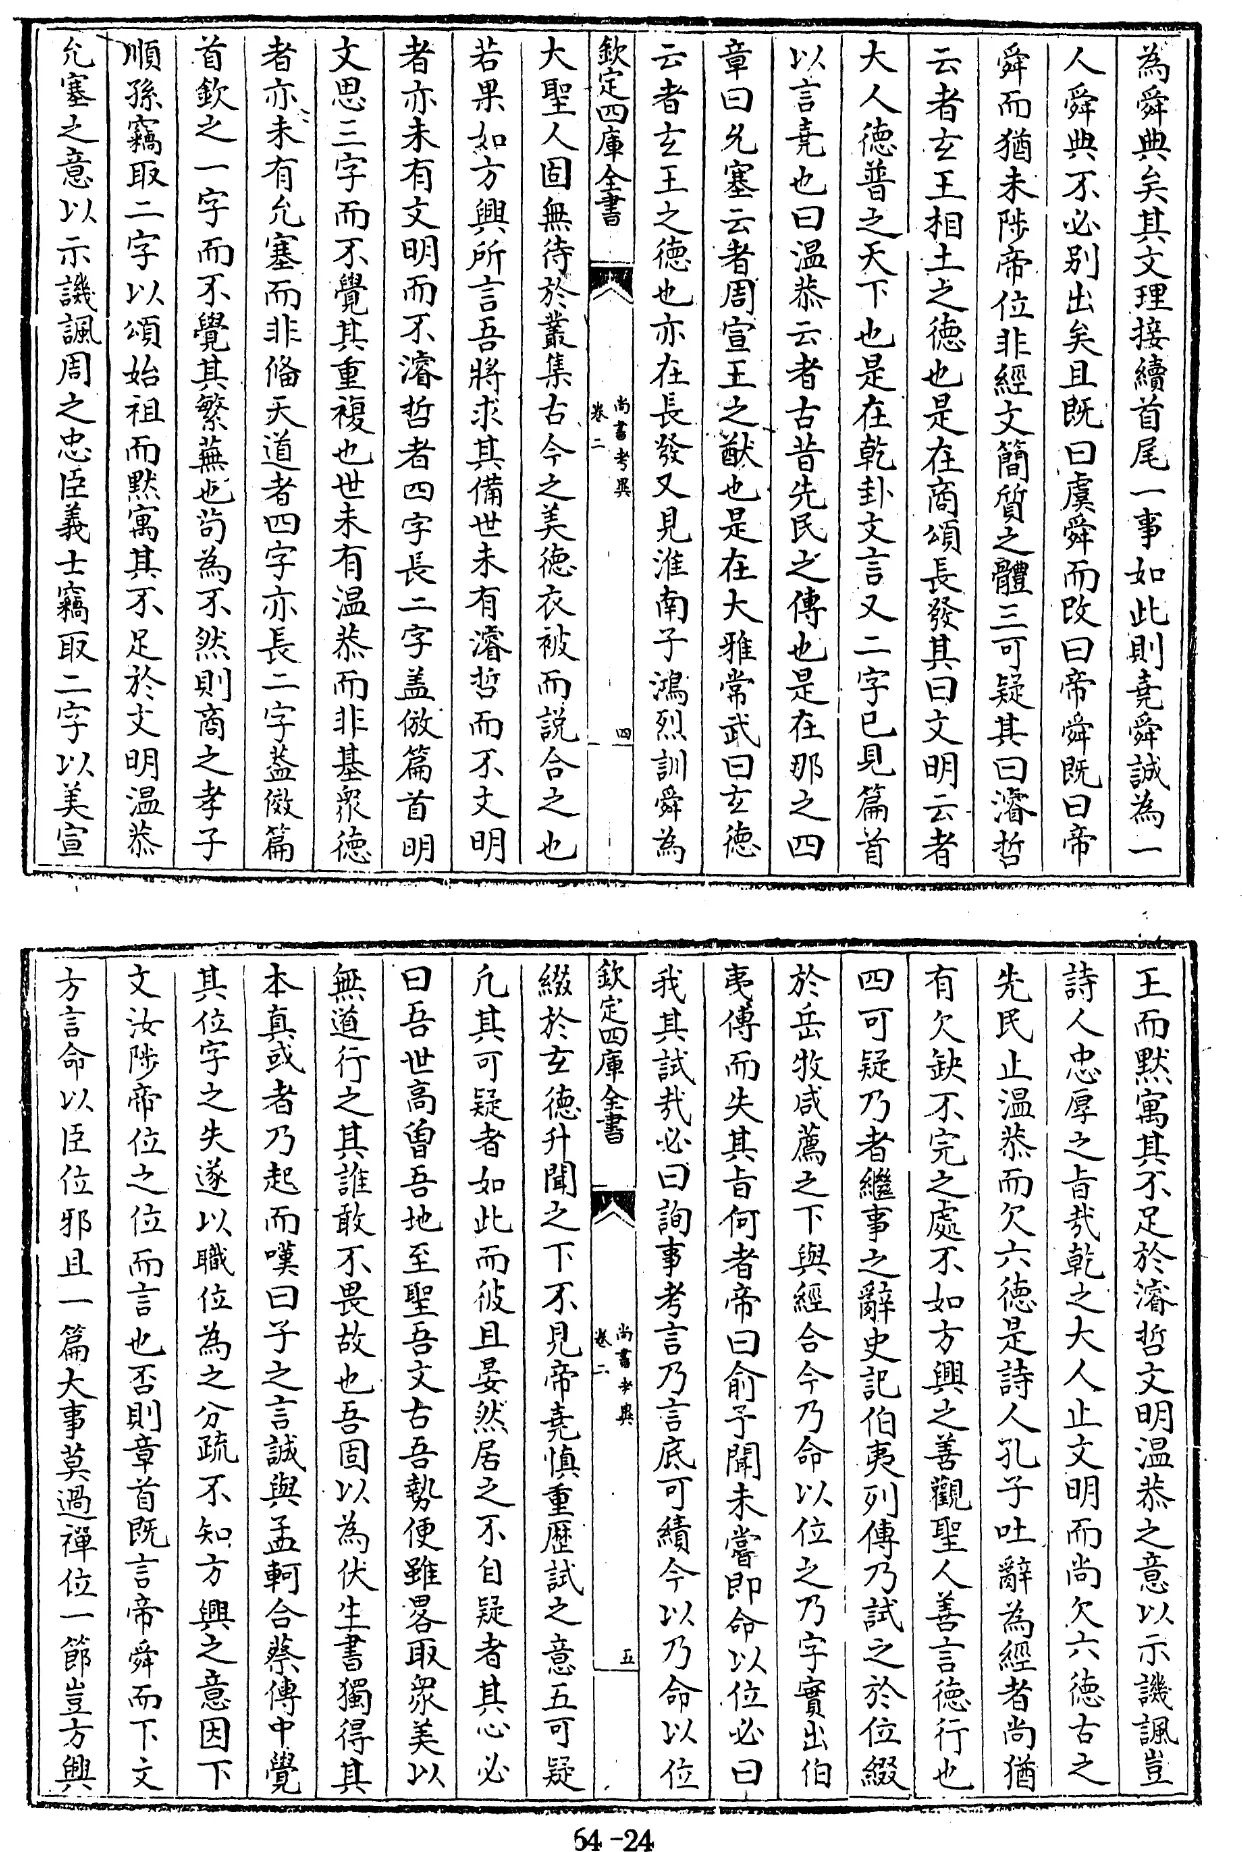 為舜典矣其文理接續首尾一事如此則堯舜誠為一
人舜典不必別出矣且既曰虞舜而改曰帝舜既曰帝
舜而猶未陟帝位非經文簡質之體三可疑其曰濬哲
云者玄王相土之德也是在商頌長發其曰文明云者
大人德普之天下也是在乾卦文言又二字已見篇首
以言堯也曰温恭云者古昔先民之傳也是在那之四
章曰允塞云者周宣王之猷也是在大雅常武曰玄德
云者玄王之德也亦在長發又見淮南子鴻烈訓舜為
欽定四庫全書
尚書考異
卷二
四
大聖人固無待於叢集古今之美德衣被而説合之也
若果如方興所言吾將求其備世未有濬哲而不文明
者亦未有文明而不濬哲者四字長二字盖倣篇首明
文思三字而不覺其重複也世未有温恭而非基衆德
者亦未有允塞而非俻天道者四字亦長二字葢倣篇
首欽之一字而不覺其繁蕪也茍為不然則商之孝子
順孫竊取二字以頌始祖而黙寓其不足於文明温恭
允塞之意以示譏諷周之忠臣義士竊取二字以美宣
王而黙寓其不足於濬哲文明温恭之意以示譏諷豈
詩人忠厚之旨哉乾之大人止文明而尚欠六德古之
先民止温恭而欠六德是詩人孔子吐辭為經者尚猶
有欠缺不完之處不如方興之善觀聖人善言德行也
四可疑乃者繼事之辭史記伯夷列傳乃試之於位綴
於岳牧咸薦之下與經合今乃命以位之乃字實出伯
夷傳而失其旨何者帝曰俞予聞未嘗即命以位必曰
我其試哉必曰詢事考言乃言底可績今以乃命以位
欽定四庫全書
尚書考異
卷二
五
綴於玄德升聞之下不見帝堯慎重歴試之意五可疑
凢其可疑者如此而彼且晏然居之不自疑者其心必
曰吾世高曾吾地至聖吾文古吾勢便雖畧取衆美以
無道行之其誰敢不畏故也吾固以為伏生書獨得其
本真或者乃起而嘆曰子之言誠與孟軻合蔡傳中覺
其位字之失遂以職位為之分疏不知方興之意因下
文汝陟帝位之位而言也否則章首既言帝舜而下文
方言命以臣位邪且一篇大事莫過禪位一節豈方興
64-24